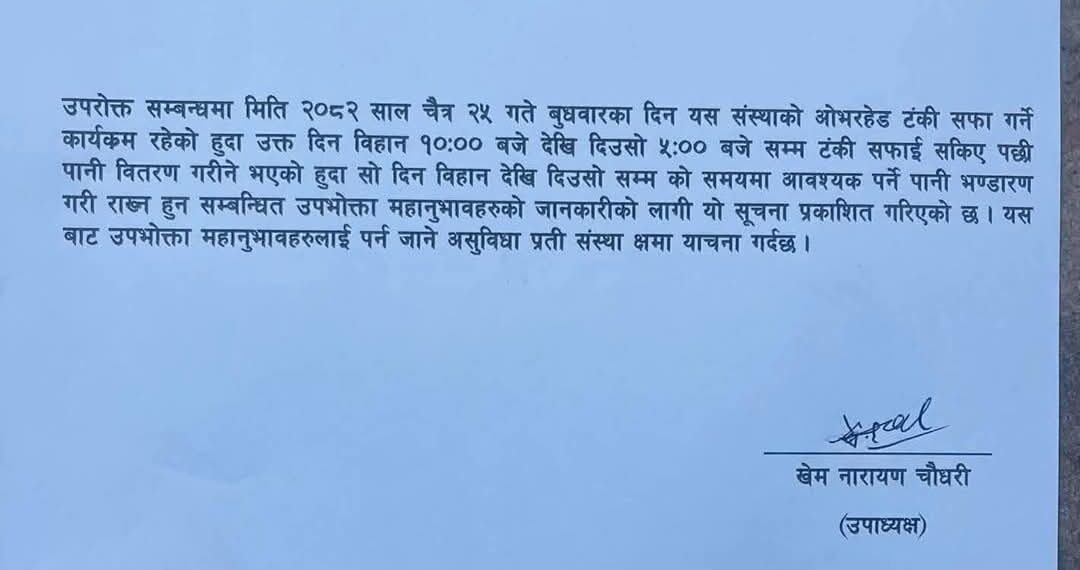 उपरोक्त सम्बन्धमा मिति २०८२ साल चैत्र २५ गते बुधवारका दिन यस संस्थाको ओभरहेड टंकी सफा गर्ने
कार्यक्रम रहेको हुदा उक्त दिन विहान १०:०० बजे देखि दिउसो ५:०० बजे सम्म टंकी सफाई सकिए पछी
पानी वितरण गरीने भएको हुदा सो दिन विहान देखि दिउसो सम्म को समयमा आवश्यक पर्ने पानी भण्डारण
गरी राख्न हुन सम्बन्धित उपभोक्ता महानुभावहरुको जानकारीको लागी यो सूचना प्रकाशित गरिएको छ । यस
बाट उपभोक्ता महानुभावहरुलाई पर्न जाने असुविधा प्रती संस्था क्षमा याचना गर्दछ ।
खेम नारायण चौधरी
(उपाध्यक्ष)